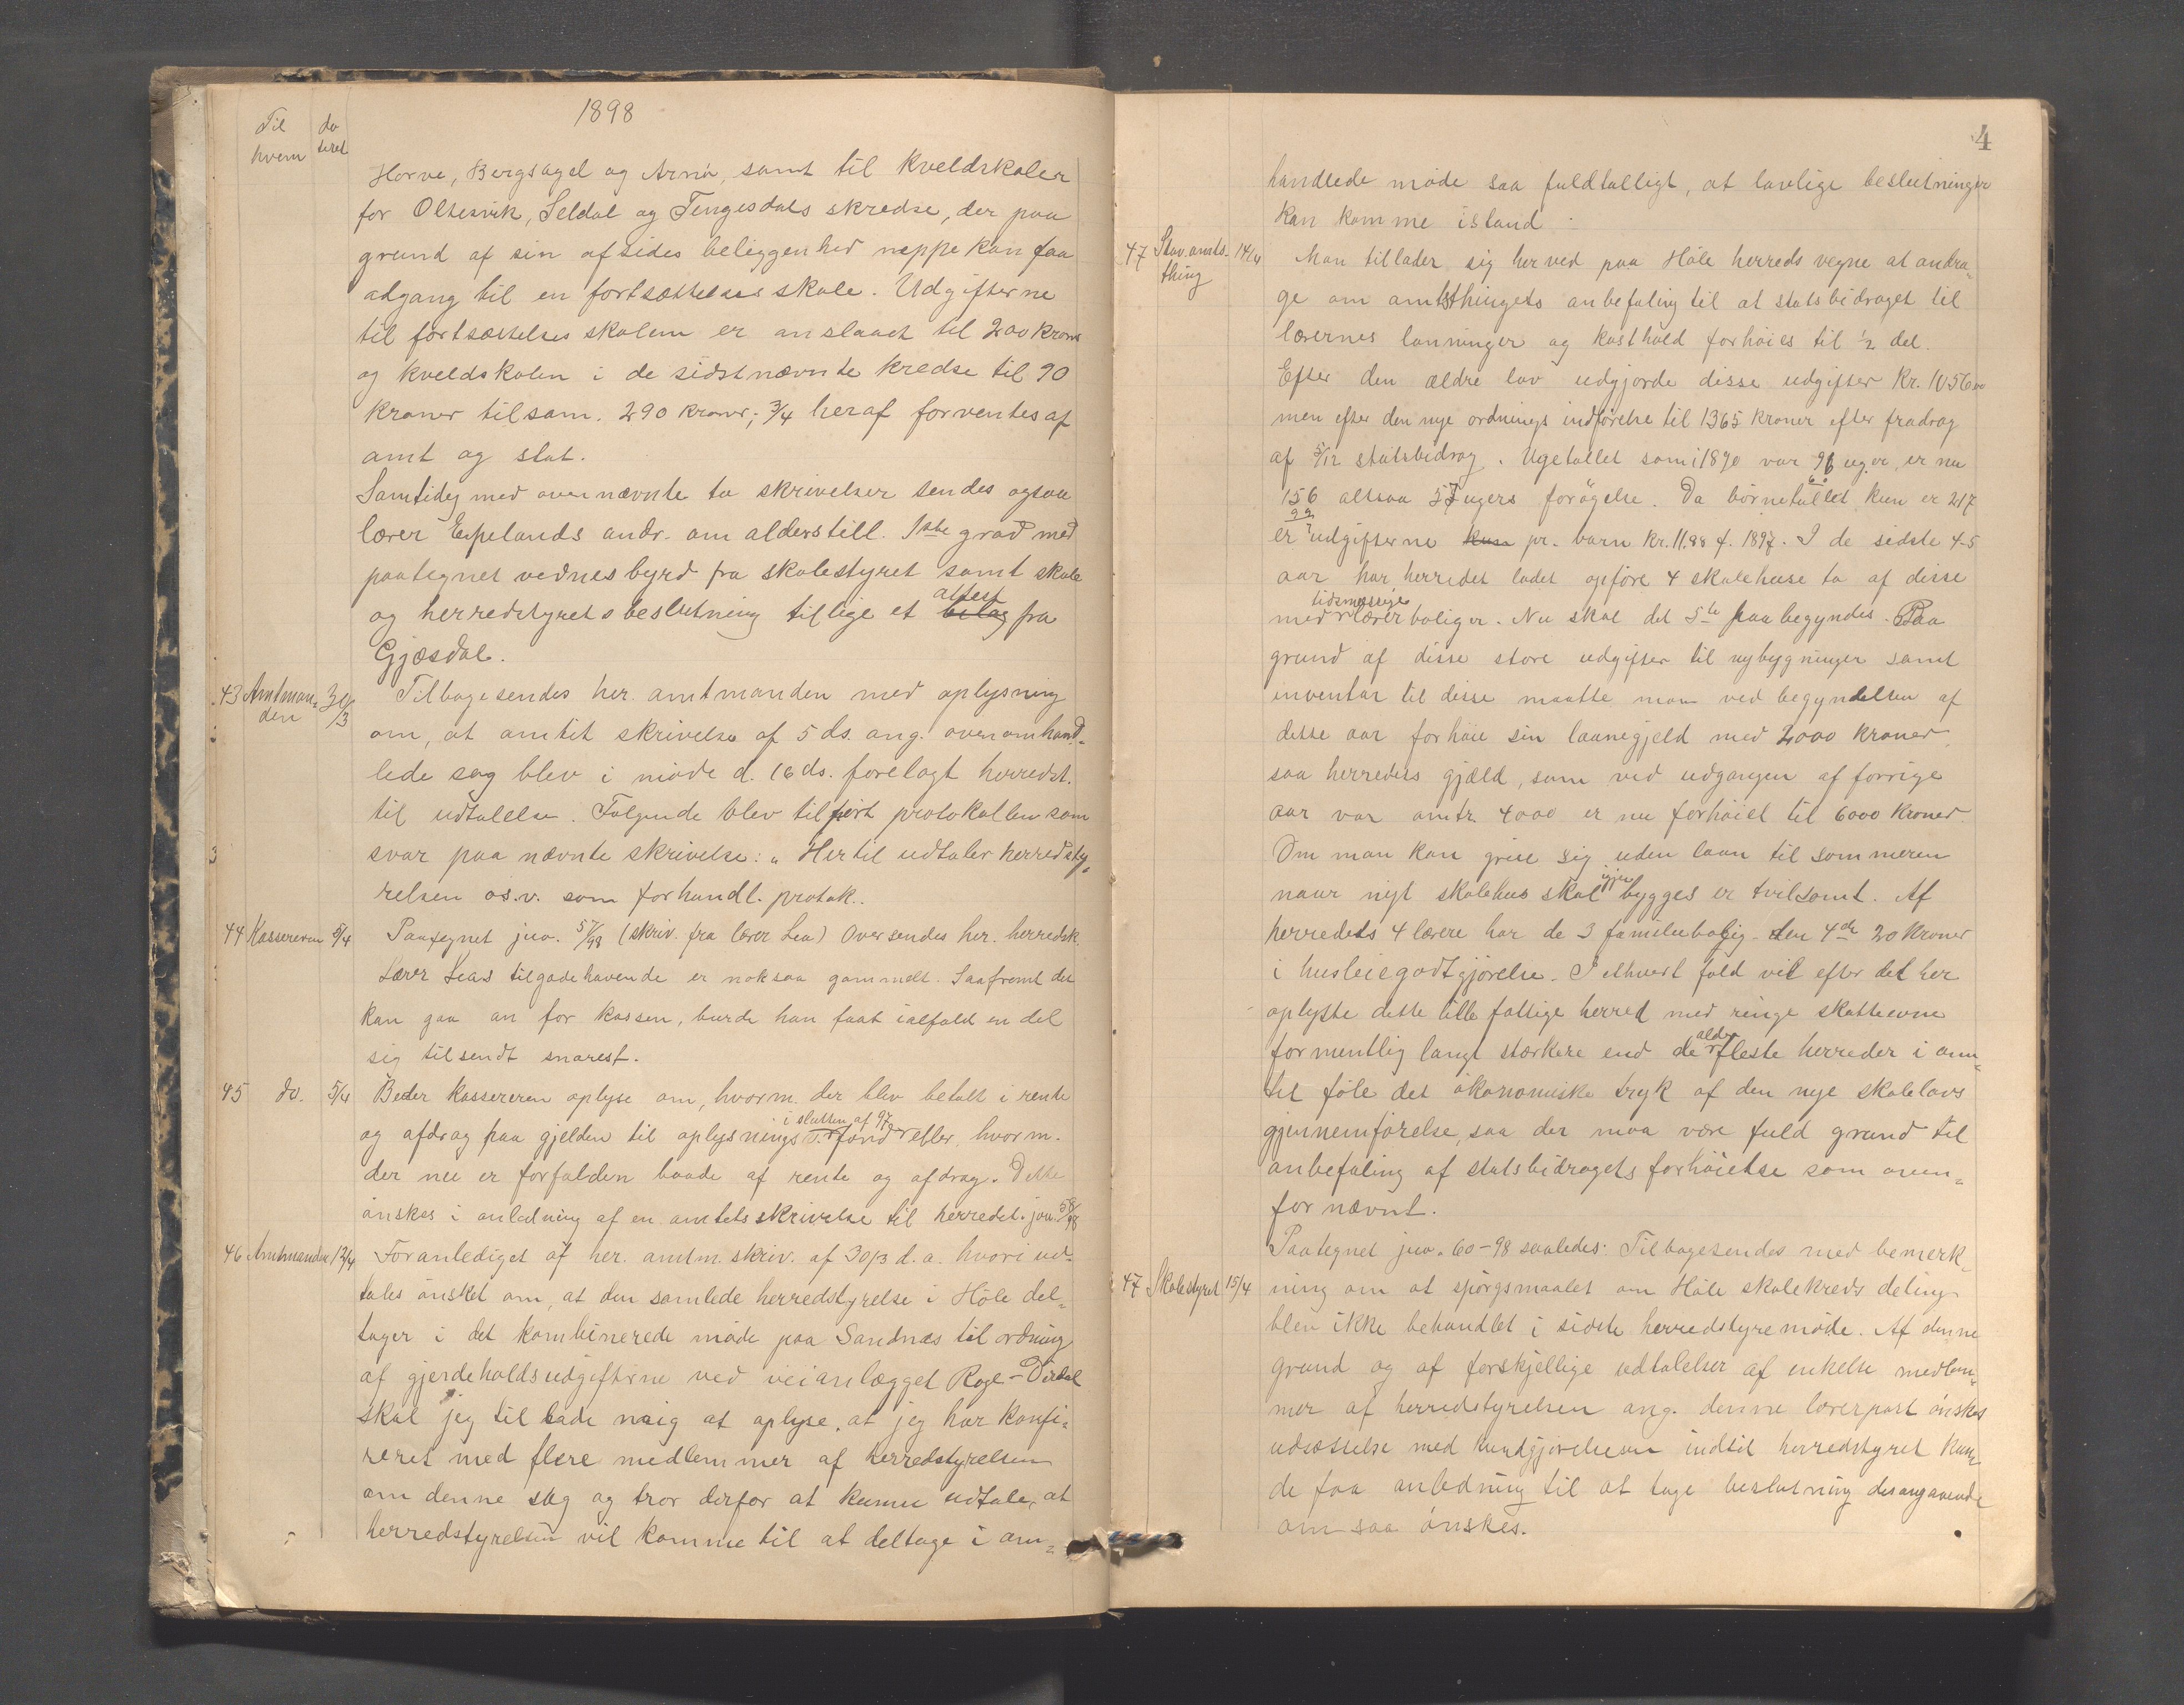 1898
Til hvem
da teret
Horve, Bergsagel og Arnö, samt til kveldskoler
for Oltesvik, Seldal og Tengesdals skredse, der paa
grund af sin afsides beliggenhed neppe kan faa
adgang til en fortsættelsesskole. Udgifterne
til fortsættelsesskolen er anslaaet til 200 kroner
og kveldskolen i de sidstnævnte kredse til 90
kroner tilsam. 290 kroner; 3/4 heraf forventes af
amt og stat.
Samtidig med ovennævnte to skrivelser sendes ogsaa
lærer Eipelands andr. om alderstill. 1ste grad med
paategnet vidnesbyrd fra skolestyret samt skole
og herredstyrets beslutning tillige et bilag attest fra
Gjæsdal.
43 Amtman-den 30/3 Tilbagesendes hr. amtmanden med oplysning
om, at amtets skrivelse af 5 ds. ang. ovenomhand-
lede sag blev i möde d. 16 ds. forelagt herredst.
til udtalelse. Følgende blev tilført protokollen som
svar paa nævnte skrivelse: „Hertil udtaler herredsty-
relsen os.v. som forhandl. protok..
44 Kassereren 5/4 Paategnet jno. 57/98 (skriv. fra lærer Lea) Oversendes hr. herredsk.
Lærer Leas tilgodehavende er noksaa gammelt. Saafremt det
kan gaa an for kassen, burde han faat ialfald en del
sig tilsendt snarest.
45 do. 5/4 Beder kassereren oplyse om, hvorm. der blev betalt i rente
og afdrag paa gjelden til oplysnings v. fond i slutten af 97 eller, hvorm.
der nu er forfalden baade af rente og afdrag. Dette
önskes i anledning af en amtets skrivelse til herredet. jou. 58/98
46 Amtmanden 12/4 Foranlediget af hr. amtm. skriv. af 30/3 d. a. hvori ud-
tales önsket om, at den samlede herredstyrelse i Höle del-
tager i det kombinerede möde paa Sandnæs til ordning
af gjerdeholdsudgifterne ved veianlægget Røge-Dirdal
skal jeg tillade mig at oplyse, at jeg har konfe-
reret med flere medlemmer af herredstyrelsen
om denne sag og tror derfor at kunne udtale, at
herredstyrelsen vil komme til at deltage i om-
4
handlede möde saa fuldtalligt, at lovlige beslutninger
kan komme istand.
47 Stav. amts-thing 14/4 Man tillader sig herved paa Höle herreds vegne at andra-
ge om amtsthingets anbefaling til at statsbidraget til
lærernes lønninger og kosthold forhöies til 1/2 del.
Efter den ældre lov udgjorde disse udgifter Kr. 1056,00
men efter den nye ordnings indförelse til 1365 kroner efter fradrag
af 5/12 statsbidrag. Ugetallet som i 1890 var 96 uger, er nu
156 altsaa 57 ugers forögelse. Da börnetallet kun er 217
er udgifterne kun pr. barn kr. 11.88 f. 1897. I de sidste 4-5
aar har herredet ladet opföre 4 skolehuse to af disse
med tidsmæssige lærerboliger. Nu skal det 5te paabegyndes. Paa
grund af disse store udgifter til nybygninger samt
inventar til disse maatte man ved begyndelsen af
dette aar forhöie sin laanegjeld med 2000 kroner,
saa herredets gjæld, som ved udgangen af forrige
aar var omtr. 4000 er nu forhöiet til 6000 kroner.
Om man kan greie sig uden laan til sommeren
naar nyt skolehus skal igjen bygges er tvilsomt. Af
herredets 4 lærere har de 3 familiebolig - den 4de 20 kroner
i husleiegodtgjörelse. I ethvert fald vil efter det her
oplyste dette lille fattige herred med ringe skatteevne
formentlig langt stærkere end de alder fleste herreder i am-
tet föle det ökonomiske tryk af den nye skolelovs
gjennemförelse, saa der maa være fuld grund til
anbefaling af statsbidragets forhöielse som oven-
for nævnt.
Paategnet jno. 60-98 saaledes: Tilbagesendes med bemerk-
47 Skolestyret 15/4 ning om at spörgsmaalet om Höle skolekreds deling
blev ikke behandlet i sidste herredstyremöde. Af denne
grund og af forskjellige udtalelser af enkelte medlem-
mer af herredstyrelsen ang. denne lærerpost önskes
udsættelse med kundgjörelsen indtil herredstyret kun-
de faa anledning til at tage beslutning desangaaende
om saa önskes.